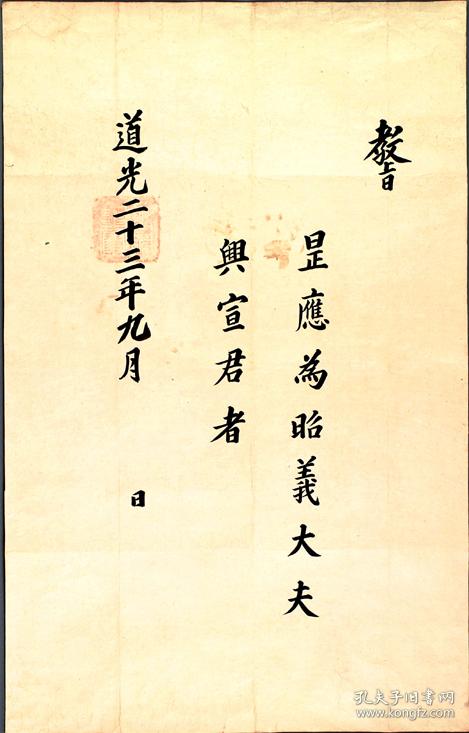 教旨
昰應為昭義大夫
興宣君者
道光二十三年九月 日
孔夫子旧书网
www.kongfz.com